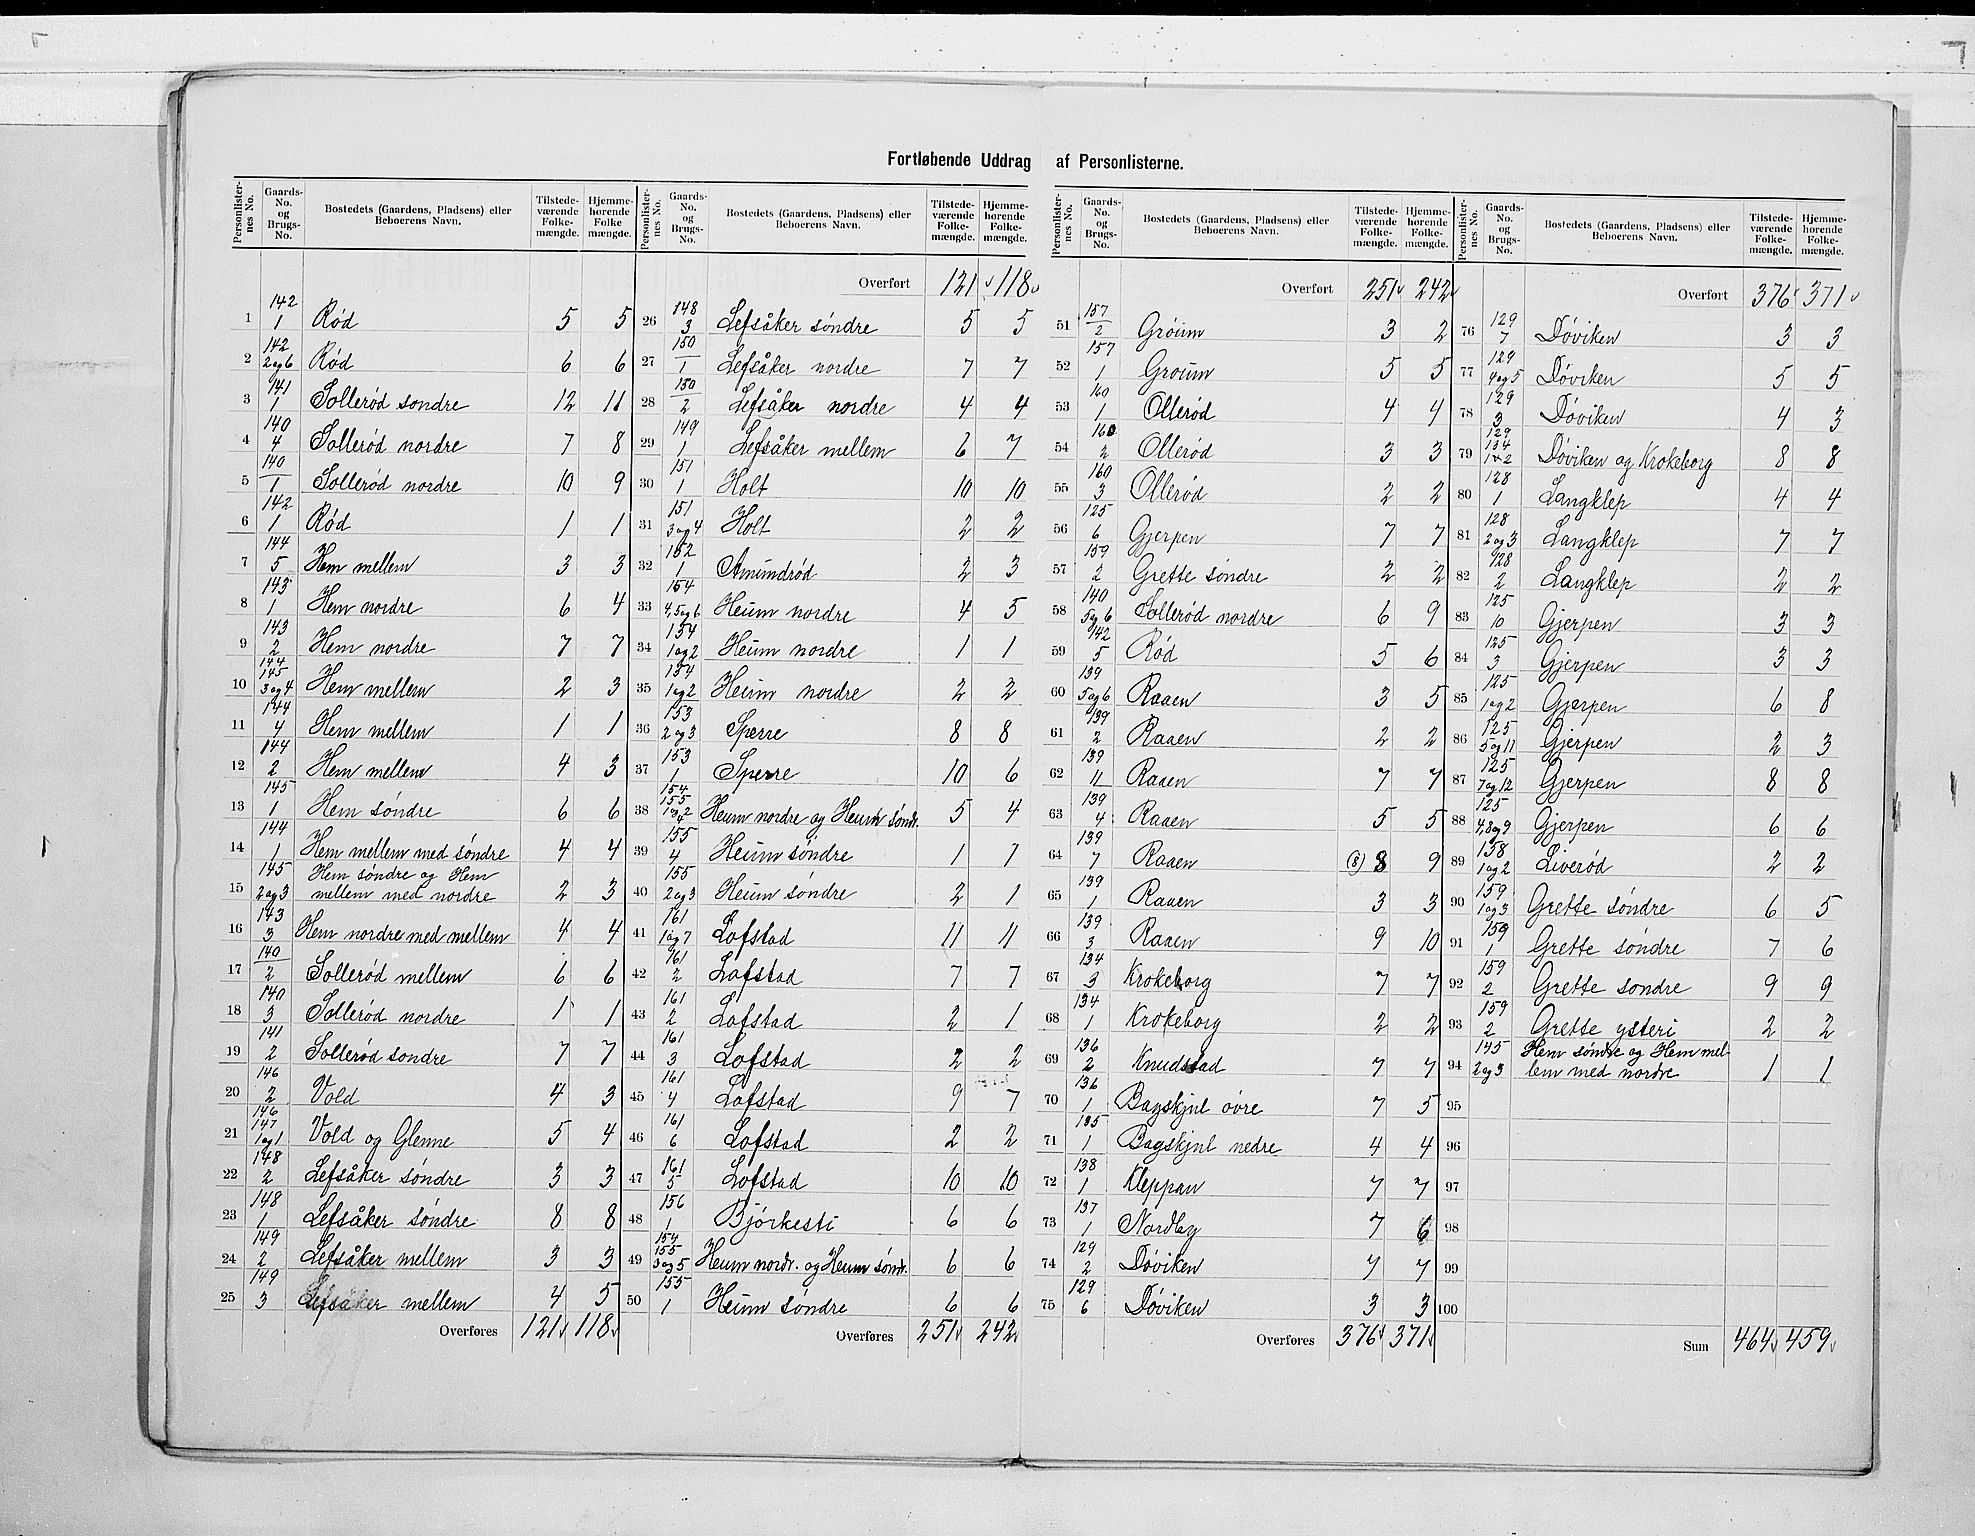 Fortløbende Uddrag af Personlisterne.
Personlister-nes No. | Gaards-No. og Brugs-No. | Bostedets (Gaardens, Pladsens) eller Beboerens Navn. | Tilstede-værende Folke-mængde. | Hjemme-hørende Folke-mængde.
1 | 142 1 | Rød | 5 | 5
2 | 142 2og6 | Rød | 6 | 6
3 | 141 1 | Sollerød søndre | 12 | 11
4 | 140 4 | Sollerød nordre | 7 | 8
5 | 140 1 | Sollerød nordre | 10 | 9
6 | 142 1 | Rød | 1 | 1
7 | 144 5 | Hem mellem | 3 | 3
8 | 143 1 | Hem nordre | 6 | 4
9 | 143 2 | Hem nordre | 7 | 7
10 | 144 145 3og4 | Hem mellem | 2 | 3
11 | 144 4 | Hem mellem | 1 | 1
12 | 144 2 | Hem mellem | 4 | 3
13 | 145 1 | Hem søndre | 6 | 6
14 | 144 1 | Hem mellem med søndre | 4 | 4
15 | 145 2og3 | Hem søndre og Hem
mellem med nordre | 2 | 3
16 | 143 3 | Hem nordre med mellem | 4 | 4
17 | 140 2 | Sollerød mellem | 6 | 6
18 | 140 3 | Sollerød nordre | 1 | 1
19 | 141 2 | Sollerød søndre | 7 | 7
20 | 146 2 | Vold | 4 | 3
21 | 146 147 1og1 | Vold og Glenne | 5 | 4
22 | 148 2 | Lefsåker søndre | 3 | 3
23 | 148 1 | Lefsåker søndre | 8 | 8
24 | 149 2 | Lefsåker mellem | 3 | 3
25 | 149 3 | Lefsåker mellem | 4 | 5
Overføres | 121 | 118
Personlister-nes No. | Gaards-No. og Brugs-No. | Bostedets (Gaardens, Pladsens) eller Beboerens Navn. | Tilstede-værende Folke-mængde. | Hjemme-hørende Folke-mængde.
Overført | 121 | 118
26 | 148 3 | Lefsåker søndre | 5 | 5
27 | 150 1 | Lefsåker nordre | 7 | 7
28 | 150 2 | Lefsåker nordre | 4 | 4
29 | 149 1 | Lefsåker mellem | 6 | 7
30 | 151 1 | Holt | 10 | 10
31 | 151 3og4 | Holt | 2 | 2
32 | 152 1 | Amundrød | 2 | 3
33 | 154 4,5og6 | Heum nordre | 4 | 5
34 | 154 1og2 | Heum nordre | 1 | 1
35 | 154 1og2 | Heum nordre | 2 | 2
36 | 153 2og3 | Sperre | 8 | 8
37 | 153 1 | Sperre | 10 | 6
38 | 154 155 | Heum nordre og Heum søndr. | 5 | 4
39 | 155 4 | Heum søndre | 1 | 1
40 | 155 2og3 | Heum søndre | 2 | 1
41 | 161 1og7 | Lofstad | 11 | 11
42 | 161 2 | Lofstad | 7 | 7
43 | 161 2 | Lofstad | 2 | 1
44 | 161 3 | Lofstad | 2 | 2
45 | 161 4 | Lofstad | 9 | 7
46 | 161 6 | Lofstad | 2 | 2
47 | 161 5 | Lofstad | 10 | 10
48 | 156 1 | Bjørkesti | 6 | 6
49 | 154 155 3og5 | Heum nordr. og Heum søndr. | 6 | 6
50 | 155 1 | Heum søndre | 6 | 6
Overføres | 251 | 242
Personlister-nes No. | Gaards-No. og Brugs-No. | Bostedets (Gaardens, Pladsens) eller Beboerens Navn. | Tilstede-værende Folke-mængde. | Hjemme-hørende Folke-mængde.
Overført | 251 | 242
51 | 157 2 | Grøum | 3 | 2
52 | 157 1 | Grøum | 5 | 5
53 | 160 1 | Ollerød | 4 | 4
54 | 160 2 | Ollerød | 3 | 3
55 | 160 3 | Ollerød | 2 | 2
56 | 125 6 | Gjerpen | 7 | 7
57 | 159 2 | Grette søndre | 2 | 2
58 | 140 5og6 | Sollerød nordre | 6 | 9
59 | 142 5 | Rød | 5 | 6
60 | 139 5og6 | Raaen | 3 | 5
61 | 139 2 | Raaen | 2 | 2
62 | 139 11 | Raaen | 7 | 7
63 | 139 4 | Raaen | 5 | 5
64 | 139 7 | Raaen | (8) 8 | 9
65 | 139 1 | Raaen | 3 | 3
66 | 139 3 | Raaen | 9 | 10
67 | 134 3 | Krokeborg | 7 | 7
68 | 134 1 | Krokeborg | 2 | 2
69 | 136 2 | Knudstad | 7 | 7
70 | 136 1 | Bagskjul øvre | 7 | 5
71 | 135 1 | Bagskjul nedre | 4 | 4
72 | 138 1 | Kleppan | 7 | 7
73 | 137 1 | Nordby | 7 | 6
74 | 129 2 | Døviken | 7 | 7
75 | 129 6 | Døviken | 3 | 3
Overføres | 376 | 371
Personlister-nes No. | Gaards-No. og Brugs-No. | Bostedets (Gaardens, Pladsens) eller Beboerens Navn. | Tilstede-værende Folke-mængde. | Hjemme-hørende Folke-mængde.
Overført | 376 | 371
76 | 129 7 | Døviken | 3 | 3
77 | 129 4og5 | Døviken | 5 | 5
78 | 129 3 | Døviken | 4 | 3
79 | 129 134 1×2 | Døviken og Krokeborg | 8 | 8
80 | 128 1 | Langklep | 4 | 4
81 | 128 2og3 | Langklep | 7 | 7
82 | 128 2 | Langklep | 2 | 2
83 | 125 10 | Gjerpen | 3 | 3
84 | 125 3 | Gjerpen | 3 | 3
85 | 125 1og2 | Gjerpen | 6 | 8
86 | 125 5og11 | Gjerpen | 2 | 3
87 | 125 7og12 | Gjerpen | 8 | 8
88 | 125 4,8og9 | Gjerpen | 6 | 6
89 | 158 1og2 | Liverød | 2 | 2
90 | 159 1og3 | Grette søndre | 6 | 5
91 | 159 1 | Grette søndre | 7 | 6
92 | 159 2 | Grette søndre | 9 | 9
93 | 159 2 | Grette ysteri | 2 | 2
94 | 145 2og3 | Hem søndre og Hem mel-
lem med nordre | 1 | 1
95
96
97
98
99
100
Sum | 464 | 459